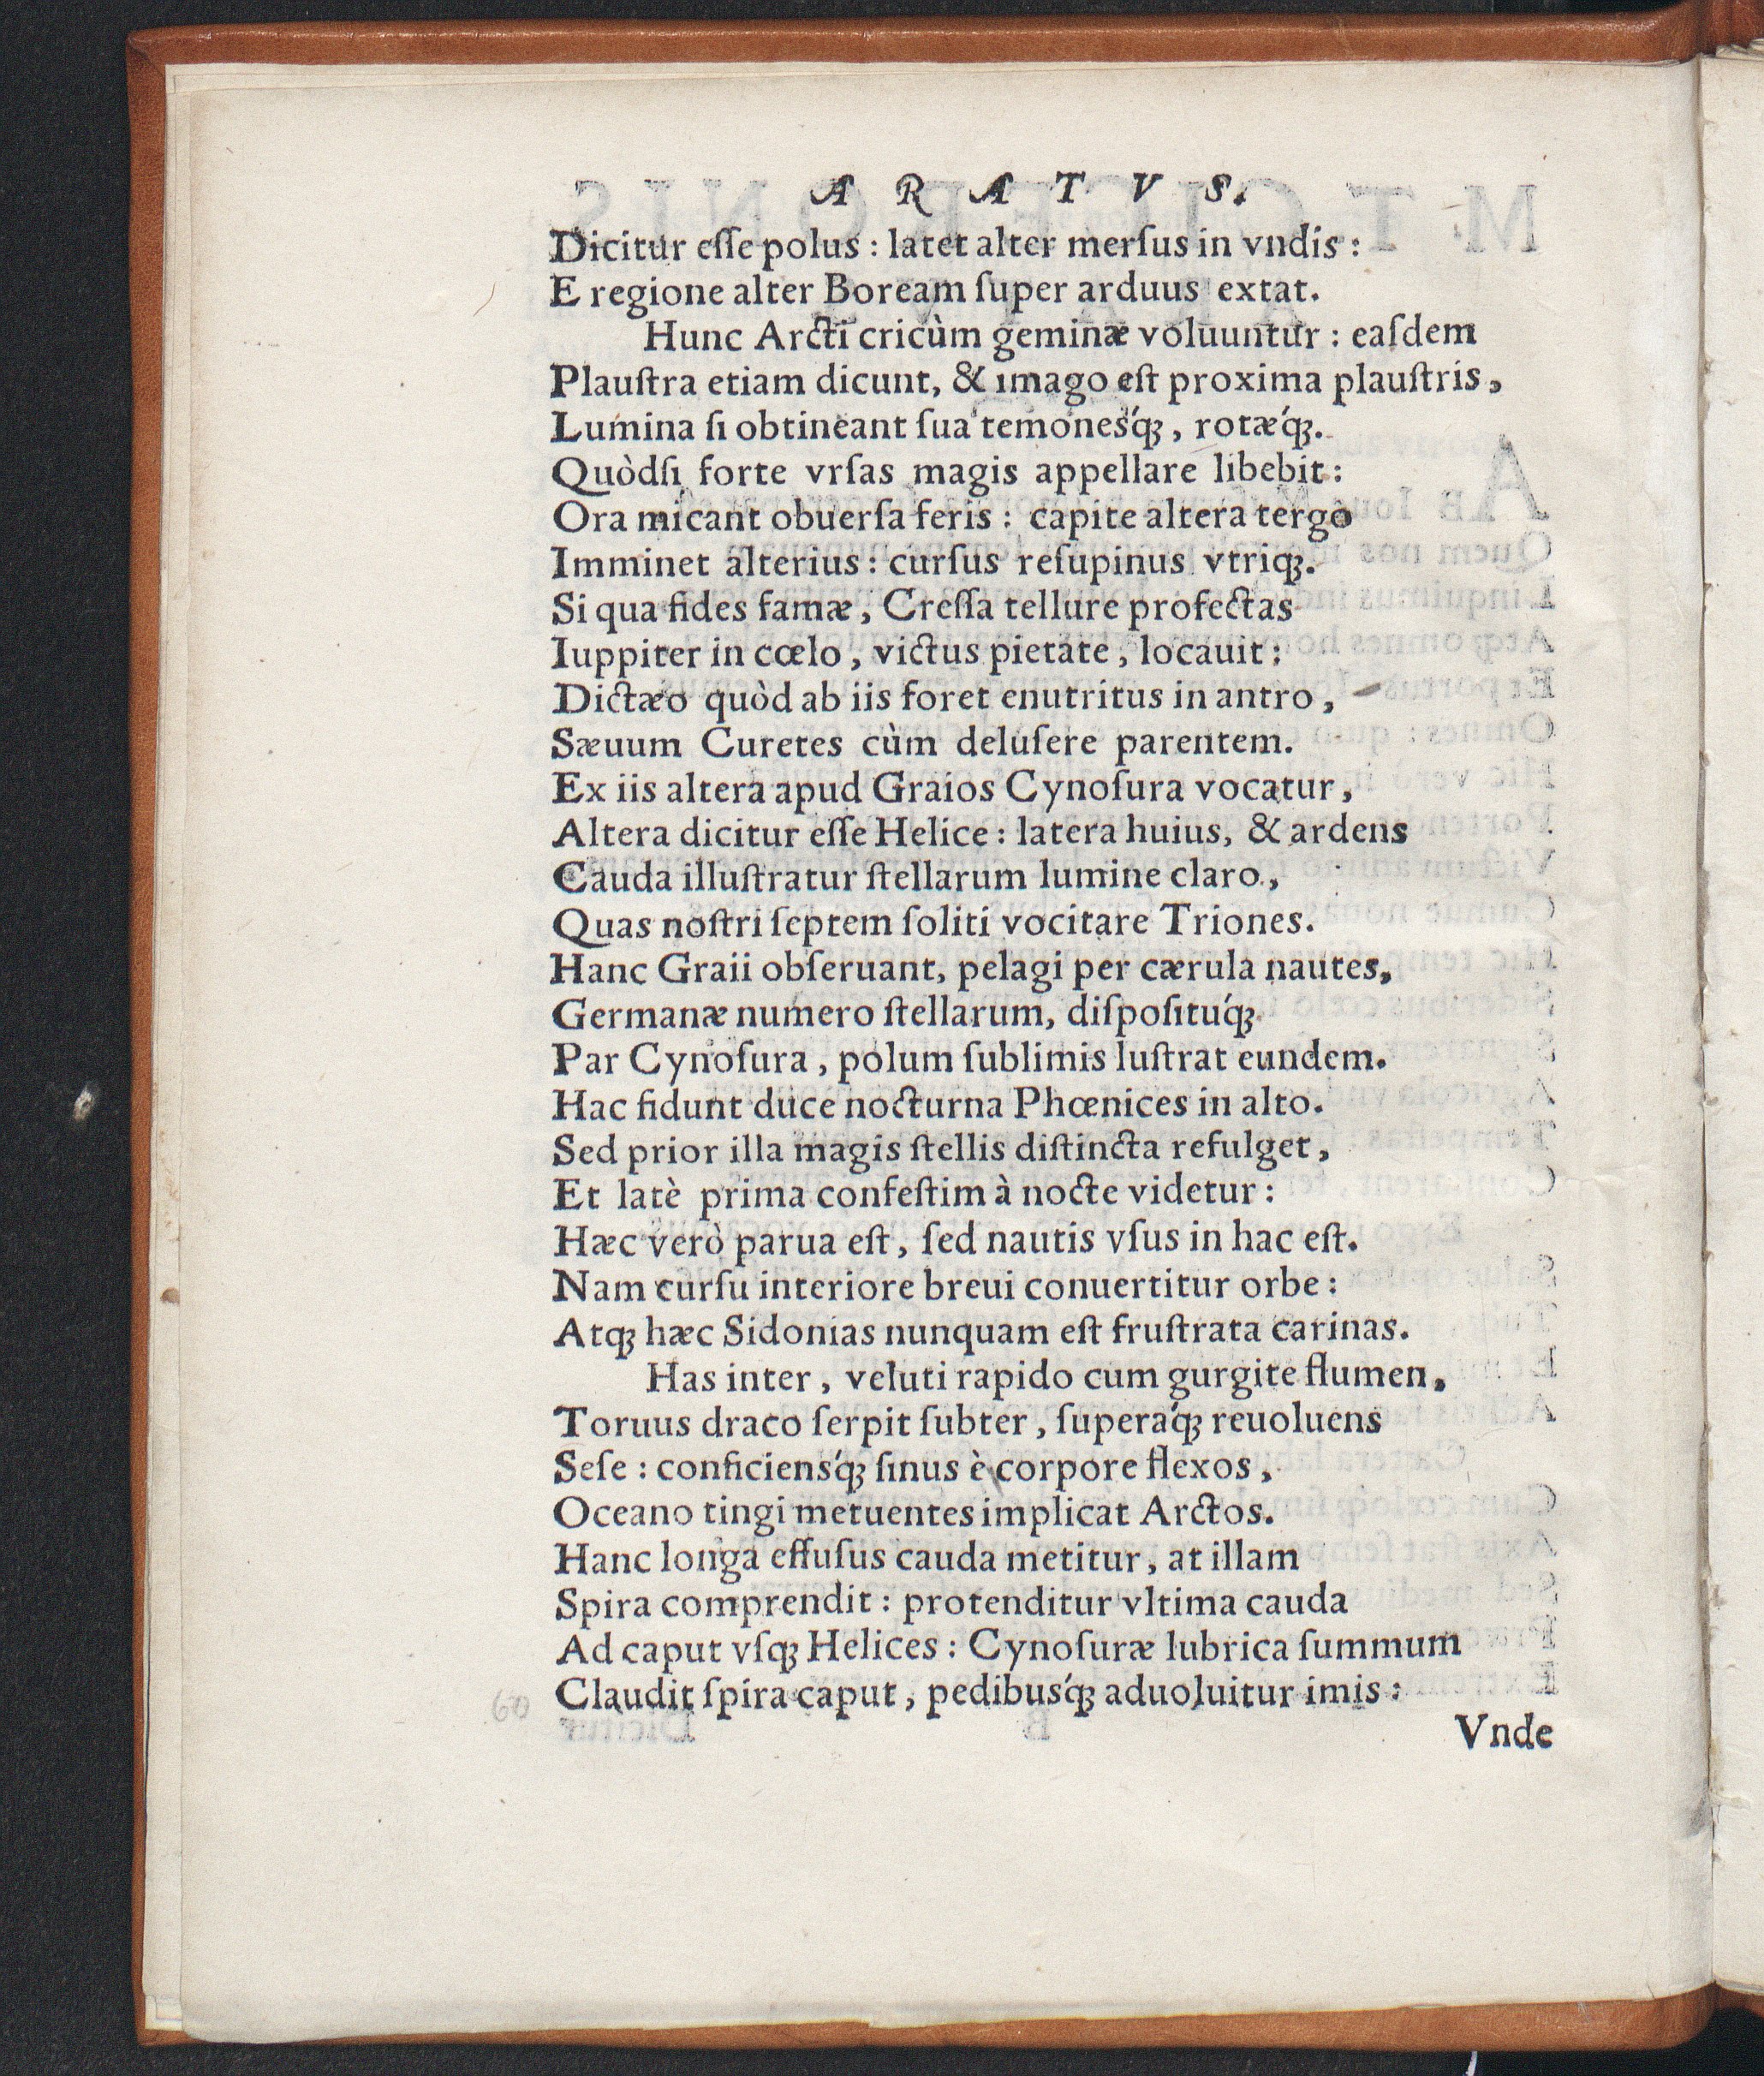 ARATVS.
Dicitur eſſe polus : latet alter merſus in vndis :
E regione alter Boream ſuper arduus extat.
Hunc Arcti cricùm geminæ voluuntur : eaſdem
Plauſtra etiam dicunt, & imago eſt proxima plauſtris,
Lumina ſi obtineant ſua temonesq́ꝫ, rotæq́ꝫ.
Quòdſi forte vrſas magis appellare libebit:
Ora micant obuerſa feris : capite altera tergo
Imminet alterius : curſus reſupinus vtriqꝫ.
Si qua fides famæ, Creſſa tellure profectas
Iuppiter in cœlo, victus pietate, locauit :
Dictæo quòd ab iis foret enutritus in antro,
Sæuum Curetes cùm deluſere parentem.
Ex iis altera apud Graios Cynoſura vocatur,
Altera dicitur eſſe Helice : latera huius, & ardens
Cauda illuſtratur ſtellarum lumine claro,
Quas noſtri ſeptem ſoliti vocitare Triones.
Hanc Graii obſeruant, pelagi per cærula nautes,
Germanæ numero ſtellarum, diſpoſituq́ꝫ
Par Cynoſura, polum ſublimis luſtrat eundem.
Hac fidunt duce nocturna Phœnices in alto.
Sed prior illa magis ſtellis diſtincta refulget,
Et latè prima confeſtim à nocte videtur :
Hæc verò parua eſt, ſed nautis vſus in hac eſt.
Nam curſu interiore breui conuertitur orbe :
Atqꝫ hæc Sidonias nunquam eſt fruſtrata carinas.
Has inter, veluti rapido cum gurgite flumen,
Toruus draco ſerpit ſubter, ſuperaq́ꝫ reuoluens
Seſe : conficiensq́ꝫ ſinus è corpore flexos,
Oceano tingi metuentes implicat Arctos.
Hanc longa effuſus cauda metitur, at illam
Spira comprendit : protenditur vltima cauda
Ad caput vſqꝫ Helices : Cynoſuræ lubrica ſummum
Claudit ſpira caput, pedibusq́ꝫ aduoluitur imis :
Vnde